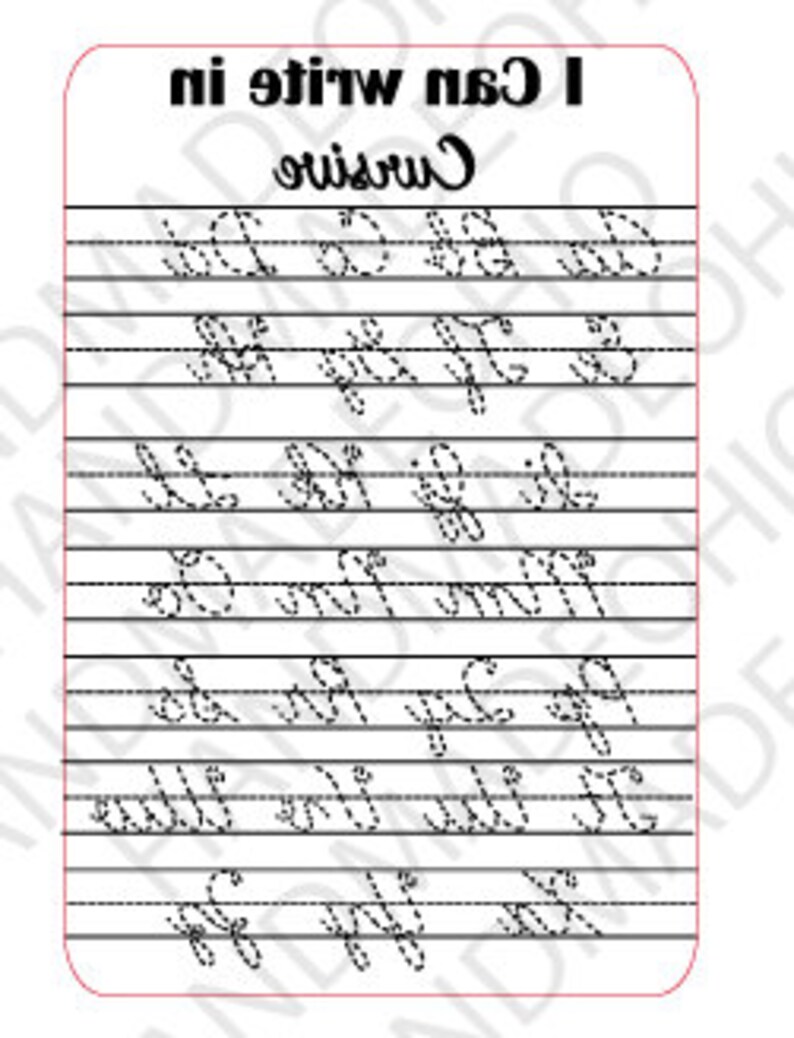 I Can write in
Cursive
Aa Bb Cc Dd
Ee Ff Gg Hh
Ii Jj Kk Ll
Mm Nn Oo
Pp Qq Rr Ss
Tt Uu Vv Ww
Xx Yy Zz
HANDMADEOHIO